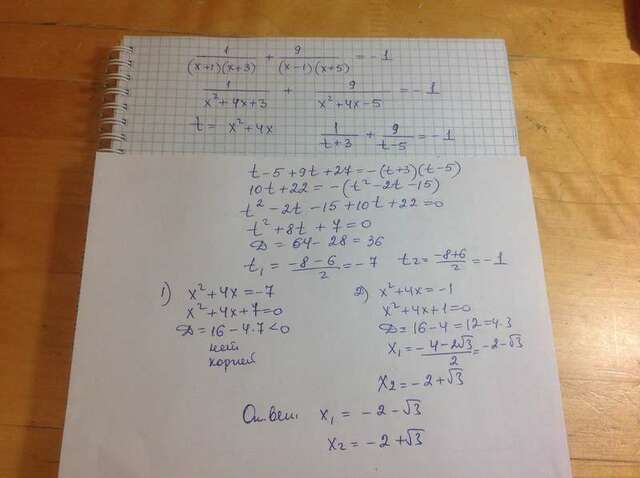 1/((x+1)(x+3)) + 9/((x-1)(x+5)) = -1
1/(x²+4x+3) + 9/(x²+4x-5) = -1
t = x²+4x   1/(t+3) + 9/(t-5) = -1
t-5+9t+27 = -(t+3)(t-5)
10t+22 = -(t²-2t-15)
t²-2t-15+10t+22=0
t²+8t+7=0
D = 64-28 = 36
t₁ = (-8-6)/2 = -7   t₂ = (-8+6)/2 = -1
1) x²+4x=-7
x²+4x+7=0
D=16-4·7<0
нет
корней
2) x²+4x=-1
x²+4x+1=0
D=16-4=12=4·3
x₁ = (-4-2√3)/2 = -2-√3
x₂ = -2+√3
Ответ: x₁ = -2-√3
x₂ = -2+√3